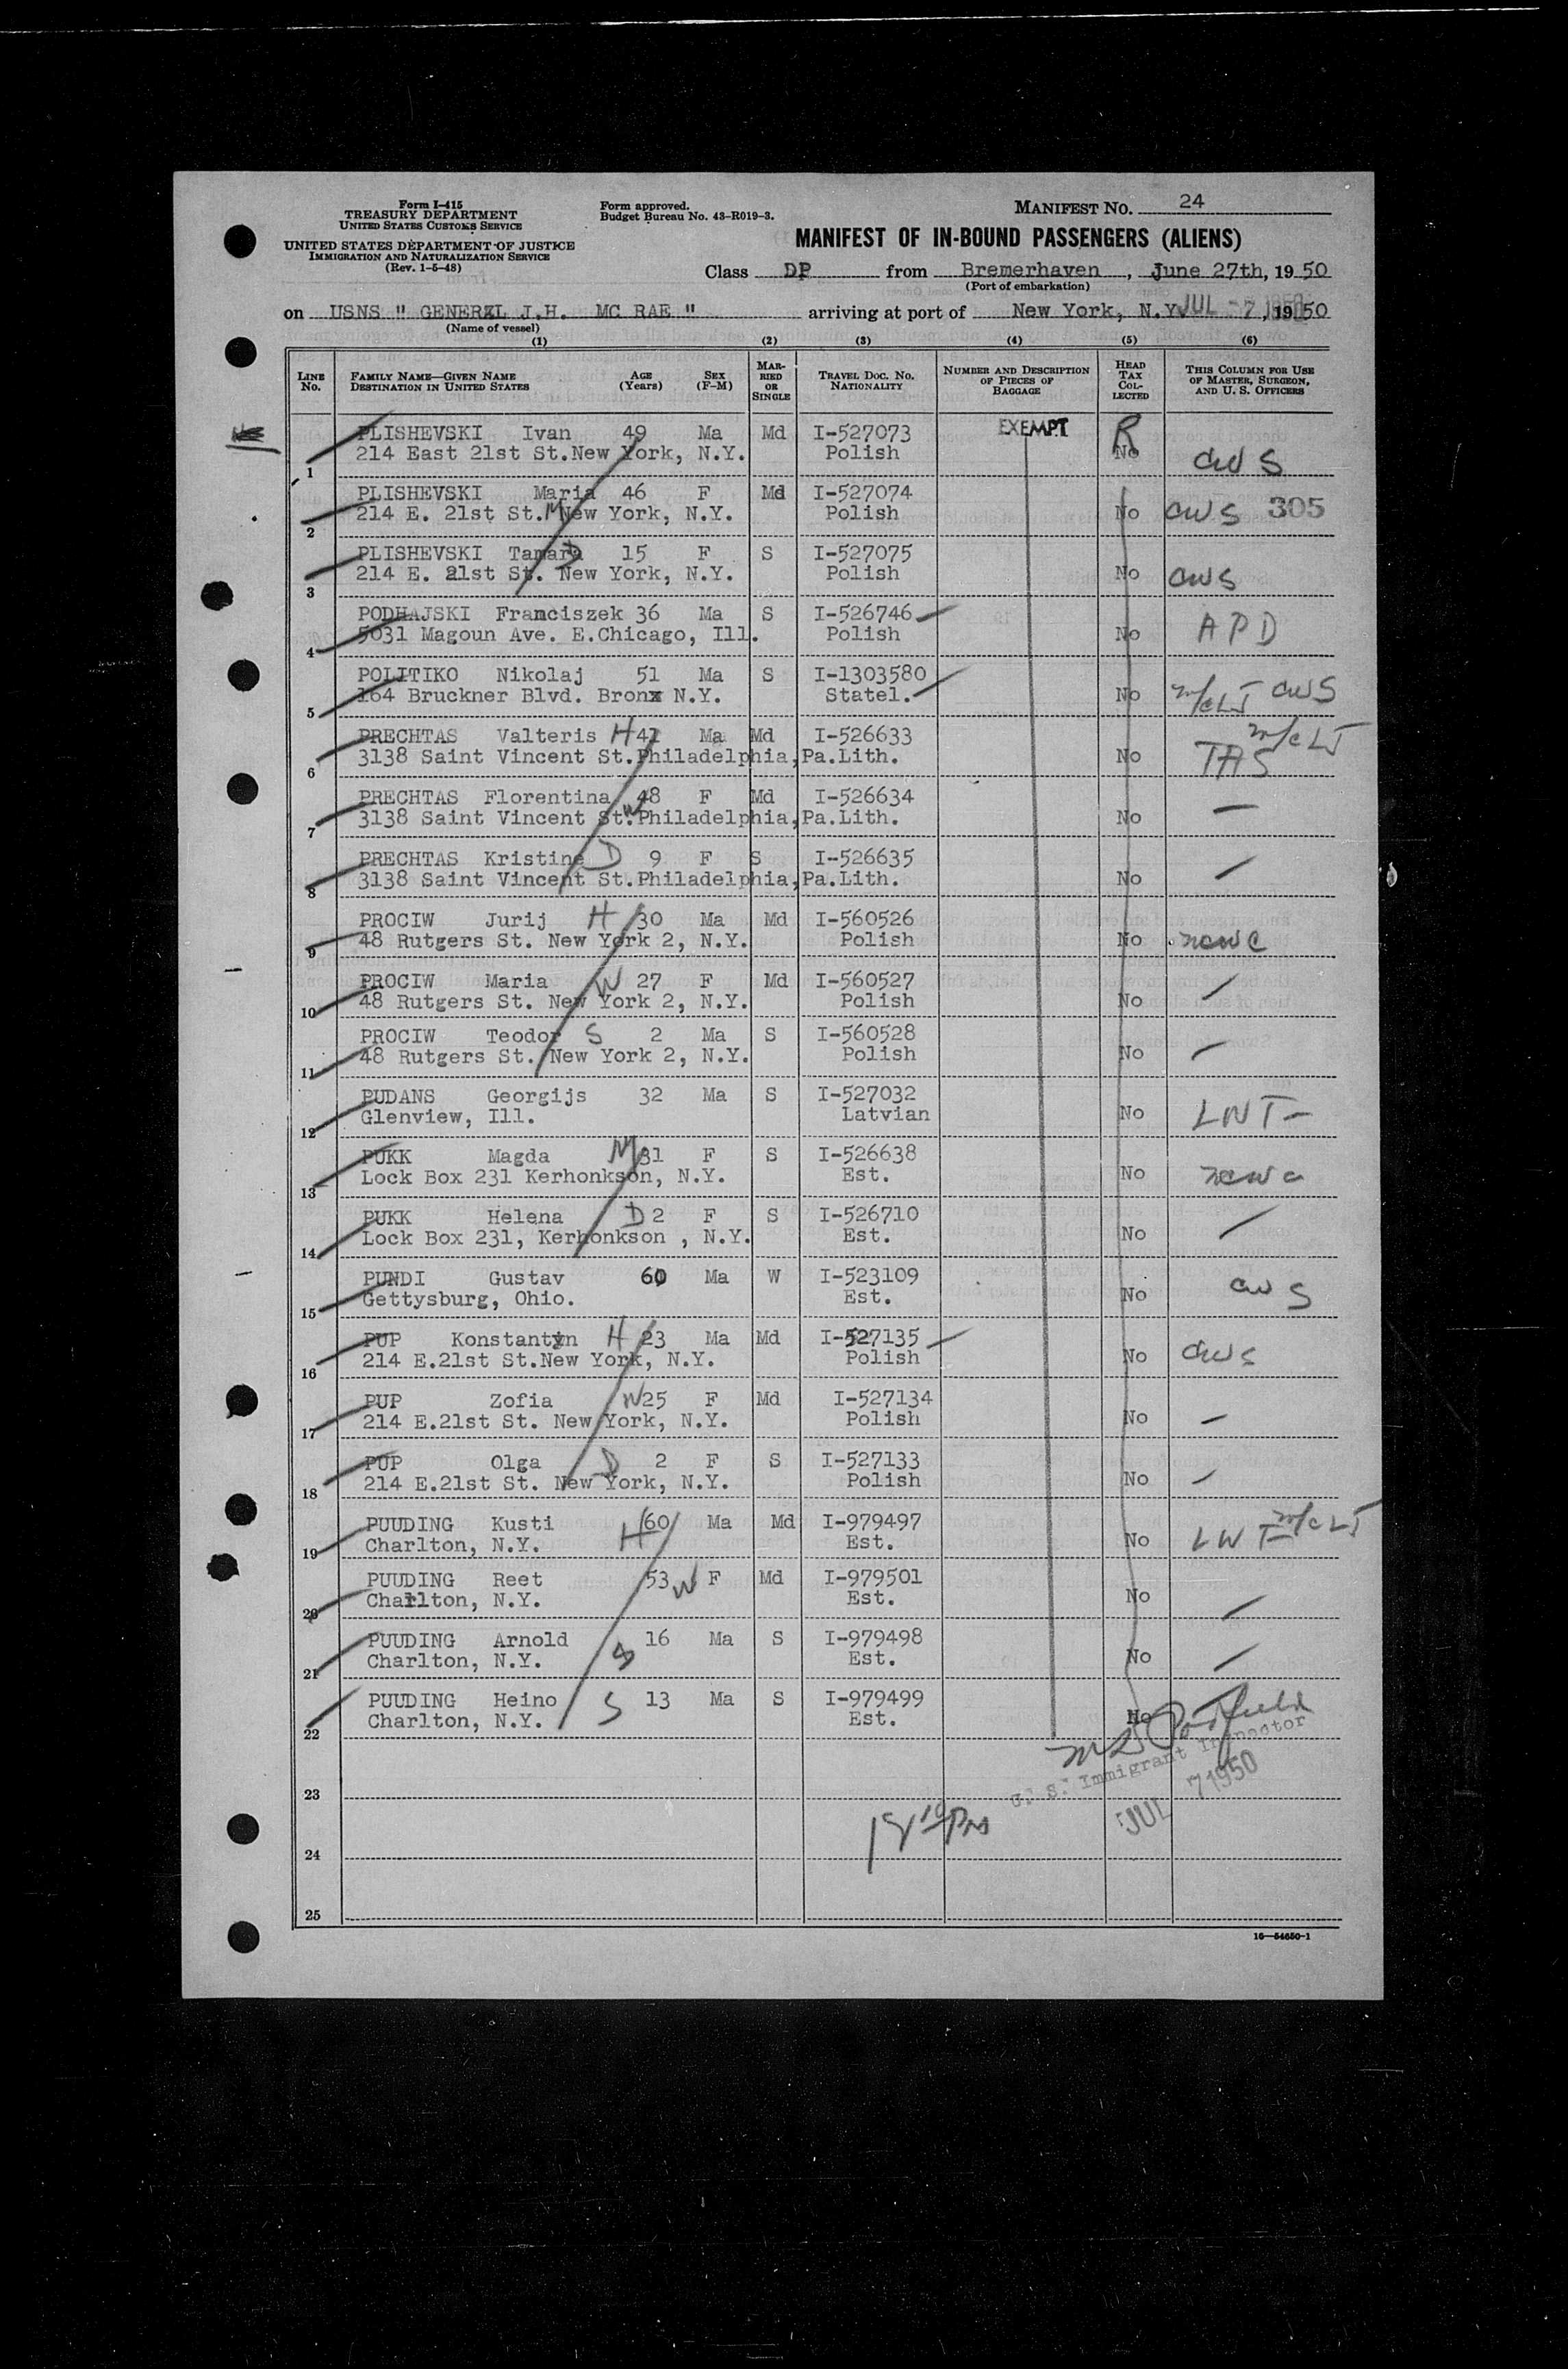 Form I-415
TREASURY DEPARTMENT
UNITED STATES CUSTOMS SERVICE
UNITED STATES DEPARTMENT OF JUSTICE
IMMIGRATION AND NATURALIZATION SERVICE
(Rev. 1-5-48)
Form approved.
Budget Bureau No. 43-R019-3.
MANIFEST NO. 24
MANIFEST OF IN-BOUND PASSENGERS (ALIENS)
Class DP from Bremerhaven, June 27th, 1950
(Port of embarkation)
on USNS " GENERAL J.H. MC RAE " arriving at port of New York, N.Y. JUL -7 1950, 1950
(Name of vessel)
(1) (2) (3) (4) (5) (6)
LINE NO. FAMILY NAME—GIVEN NAME DESTINATION IN UNITED STATES AGE (Years) SEX (F-M) MARRIED OR SINGLE TRAVEL DOC. NO. NATIONALITY NUMBER AND DESCRIPTION OF PIECES OF BAGGAGE HEAD TAX COLLECTED THIS COLUMN FOR USE OF MASTER, SURGEON, AND U. S. OFFICERS
PLISHEVSKI Ivan 49 Ma Md I-527073 EXEMPT R
1 214 East 21st St.New York, N.Y. Polish No CWS
PLISHEVSKI Maria 46 F Md I-527074
2 214 E. 21st St. M New York, N.Y. Polish No CWS 305
PLISHEVSKI Tamara D 15 F S I-527075
3 214 E. 21st St. New York, N.Y. Polish No CWS
PODHAJSKI Franciszek 36 Ma S I-526746
4 5031 Magoun Ave. E.Chicago, Ill. Polish No APD
POLITIKO Nikolaj 51 Ma S I-1303580
5 164 Bruckner Blvd. Bronx N.Y. Statel. No CWS
PRECHTAS Valteris H 42 Ma Md I-526633
6 3138 Saint Vincent St.Philadelphia,Pa.Lith. No TAS
PRECHTAS Florentina 48 F Md I-526634
7 3138 Saint Vincent St. W Philadelphia,Pa.Lith. No —
PRECHTAS Kristine D 9 F S I-526635
8 3138 Saint Vincent St.Philadelphia,Pa.Lith. No
PROCIW Jurij H 30 Ma Md I-560526
9 48 Rutgers St. New York 2, N.Y. Polish No NCWC
PROCIW Maria W 27 F Md I-560527
10 48 Rutgers St. New York 2, N.Y. Polish No
PROCIW Teodor S 2 Ma S I-560528
11 48 Rutgers St. New York 2, N.Y. Polish No
PUDANS Georgijs 32 Ma S I-527032
12 Glenview, Ill. Latvian No
PUKK Magda M 31 F S I-526638
13 Lock Box 231 Kerhonkson, N.Y. Est. No NCWC
PUKK Helena D 2 F S I-526710
14 Lock Box 231, Kerhonkson , N.Y. Est. No
PUNDI Gustav 60 Ma W I-523109
15 Gettysburg, Ohio. Est. No CWS
PUP Konstantyn H 23 Ma Md I-527135
16 214 E.21st St.New York, N.Y. Polish No CWS
PUP Zofia W 25 F Md I-527134
17 214 E.21st St. New York, N.Y. Polish No
PUP Olga D 2 F S I-527133
18 214 E.21st St. New York, N.Y. Polish No
PUUDING Kusti H 60 Ma Md I-979497
19 Charlton, N.Y. Est. No
PUUDING Reet 53 W F Md I-979501
20 Charlton, N.Y. Est. No
PUUDING Arnold S 16 Ma S I-979498
21 Charlton, N.Y. Est. No
PUUDING Heino S 13 Ma S I-979499
22 Charlton, N.Y. Est. No
U. S. Immigrant Inspector
23
JUL 7 1950
24
25
16—54650-1